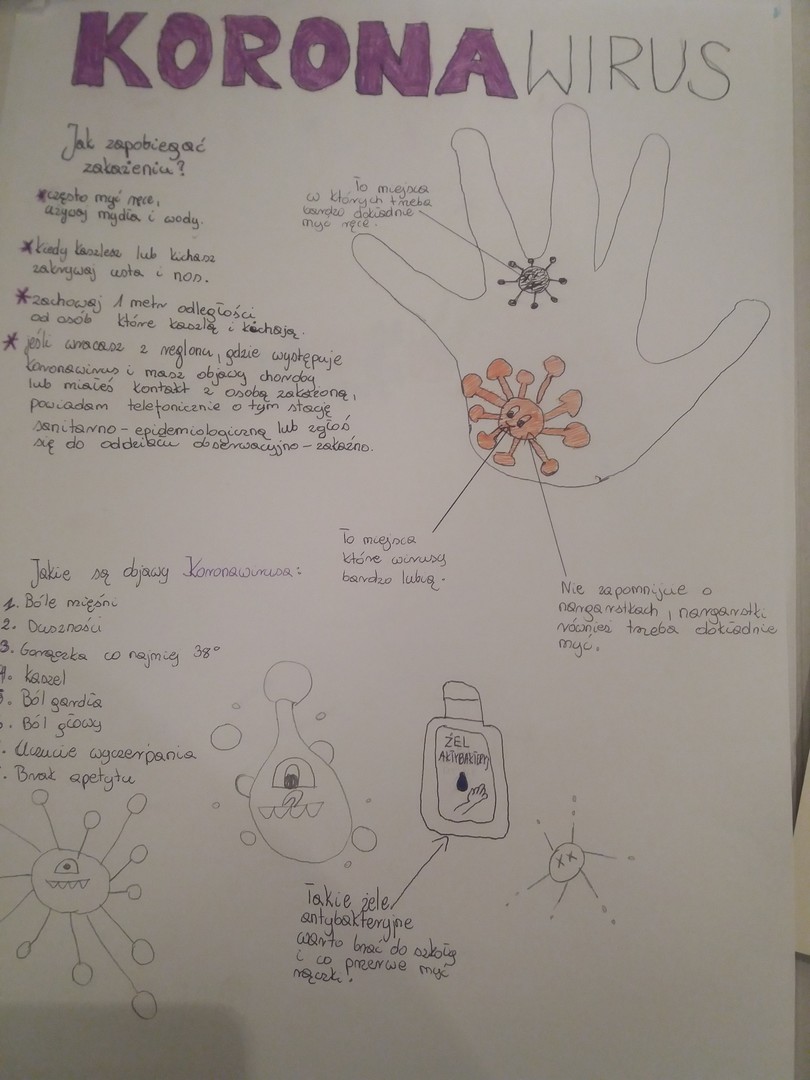 KORONAWIRUS
Jak zapobiegać
zakażeniu?
*często myć ręce,
używaj mydła i wody.
*kiedy kaszlesz lub kichasz
zakrywaj usta i nos.
*zachowaj 1 metr odległości
od osób które kaszlą i kichają.
*jeśli wracasz z regionu, gdzie występuje
koronawirus i masz objawy choroby
lub miałeś kontakt z osobą zakażoną,
powiadom telefonicznie o tym stację
sanitarno-epidemiologiczną lub zgłoś
się do oddziału obserwacyjno-zakaźno.
To miejsca
w których trzeba
bardzo dokładnie
myć ręce.
To miejsca
które wirusy
bardzo lubią.
Nie zapomnijcie o
nargarstkach, nargarstki
również trzeba dokładnie
myć.
Jakie są objawy Koronawirusa:
1. Bóle mięśni
2. Duszności
3. Gorączka co najmiej 38°
4. Kaszel
. Ból gardła
. Ból głowy
. Uczucie wyczerpania
. Brak apetytu
ŻEL
AKTYBAKTERYJ
Takie żele
antybakteryjne
warto brać do szkoły
i co przerwe myć
rączki!